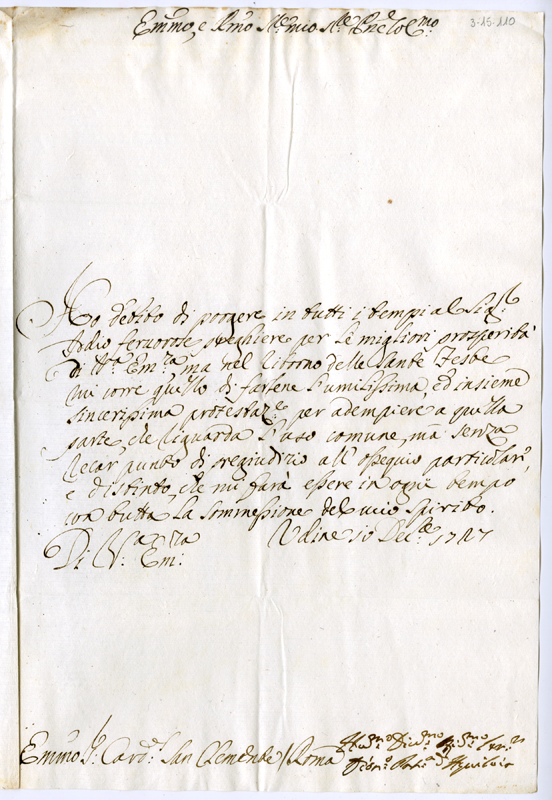 3-15-110
Emmo, e Rmo Sig.r mio Sig.r Pñe Col.mo
Ho debito di porgere in tutti i tempi al Sig.r
Iddio feruorose preghiere per le migliori prosperità
di V.ra Em.za, ma nel ritorno delle Sante Feste
mi corre quello di farlene l'umilissima, ed insieme
sincerissima protestaz.e per adempiere a quella
parte, che riguarda l'uso comune, mà senza
recar punto di pregiudizio all'ossequio particolare,
e distinto, che mi farà essere in ogni tempo
con tutta la sommessione del mio spirito.
Di V.ra Em.za Udine 10 Dec.bre 1727
Emmo S.r Card.e San Clemente / Roma